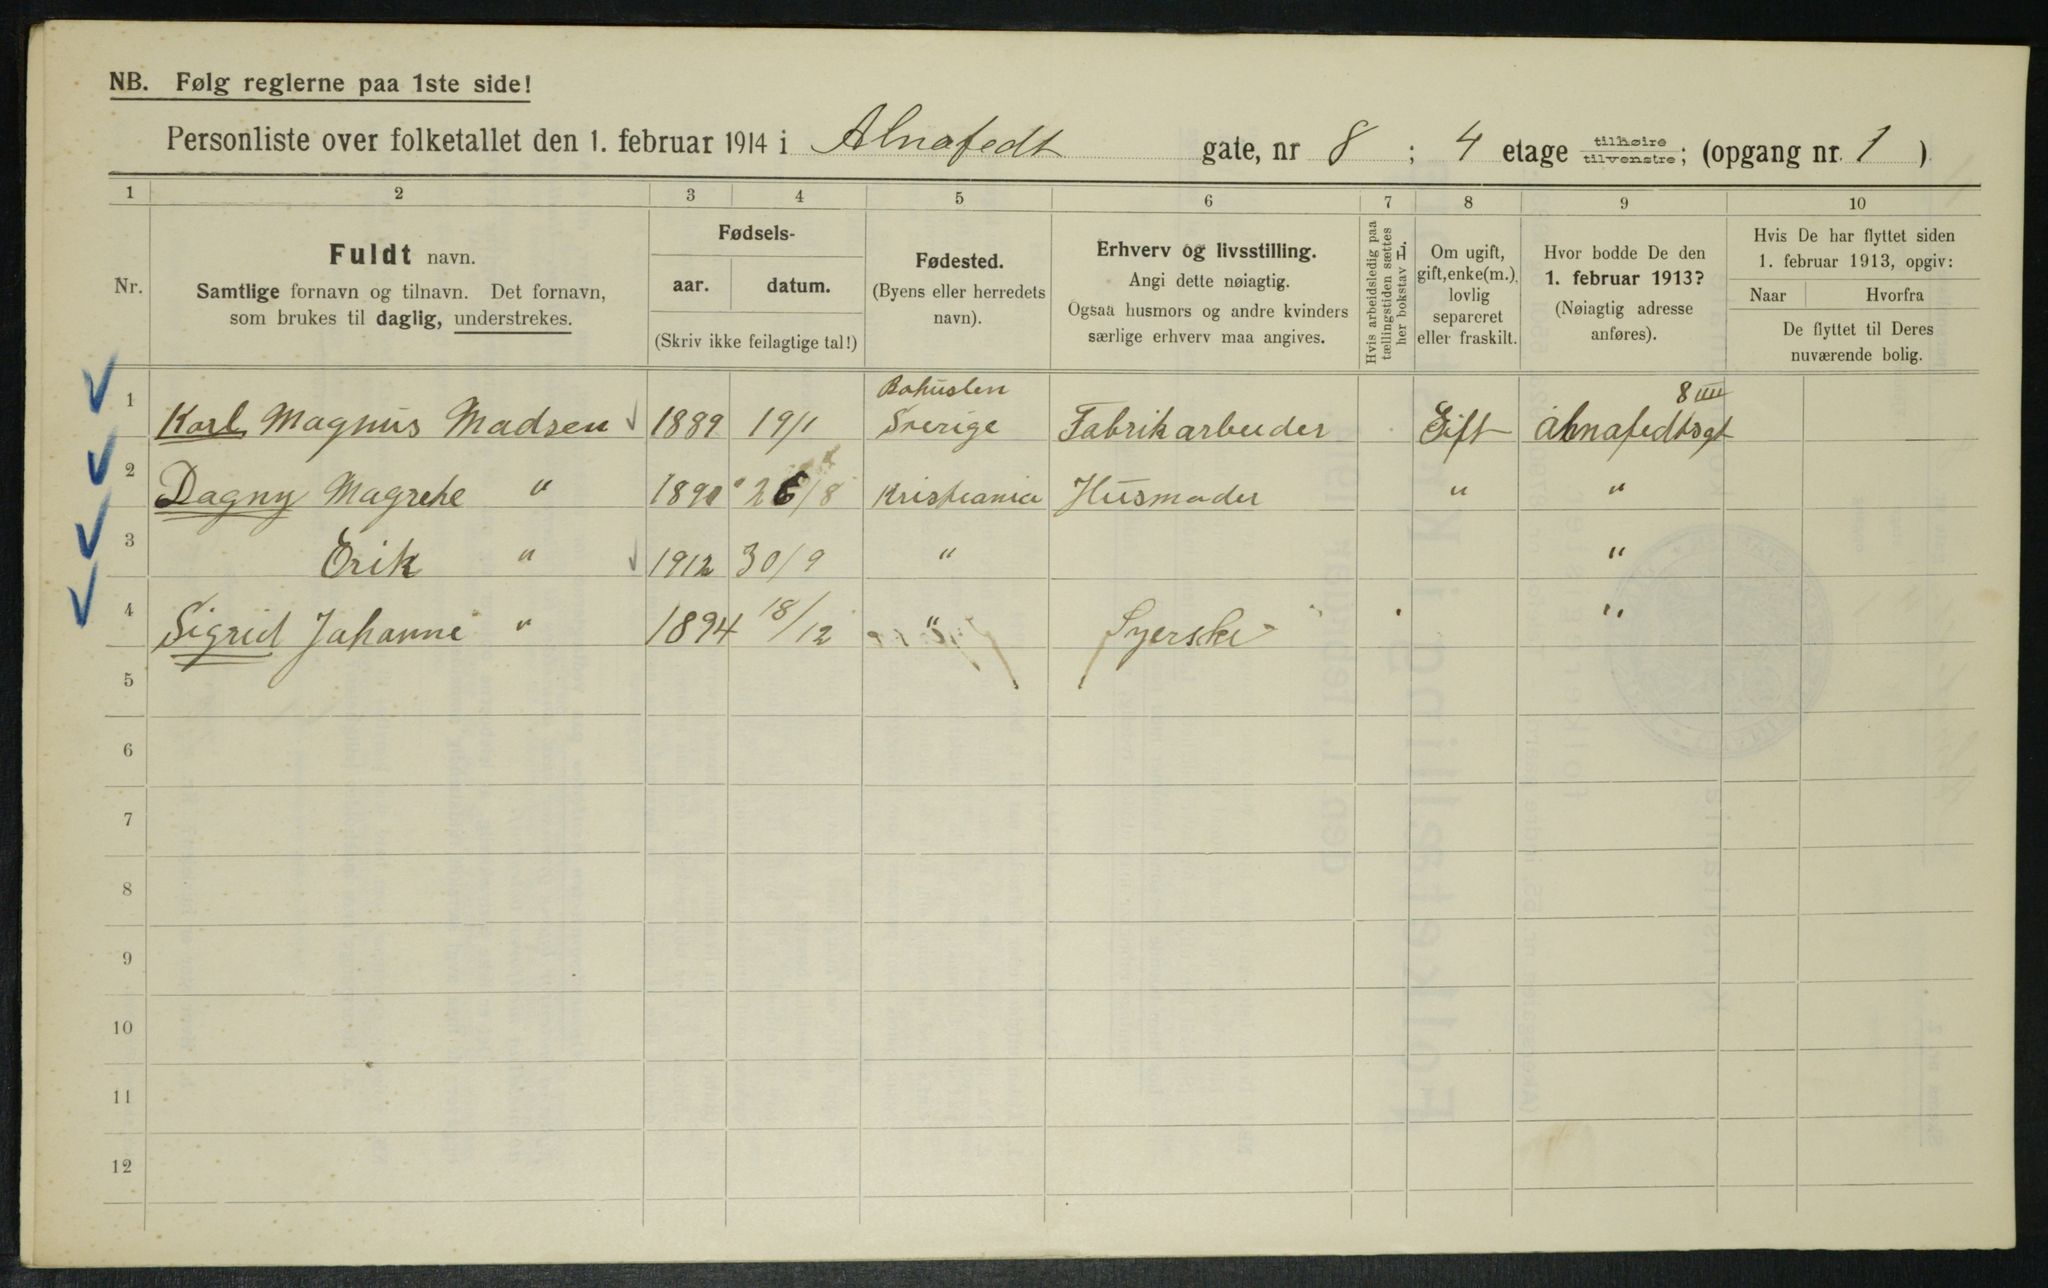 NB. Følg reglerne paa 1ste side!
Personliste over folketallet den 1. februar 1914 i Alnafedt gate, nr 8 ; 4 etage tilhøire tilvenstre; (opgang nr. 1 )
1 2 3 4 5 6 7 8 9 10
Nr.
Fuldt navn.
Samtlige fornavn og tilnavn. Det fornavn,
som brukes til daglig, understrekes.
Fødsels-
aar. datum.
(Skriv ikke feilagtige tal!)
Fødested.
(Byens eller herredets
navn).
Erhverv og livsstilling.
Angi dette nøiagtig.
Ogsaa husmors og andre kvinders
særlige erhverv maa angives.
Hvis arbeidsledig paa
tællingstiden sættes
her bokstav L.
Om ugift,
gift, enke(m.),
lovlig
separeret
eller fraskilt.
Hvor bodde De den
1. februar 1913?
(Nøiagtig adresse
anføres).
Hvis De har flyttet siden
1. februar 1913, opgiv:
Naar Hvorfra
De flyttet til Deres
nuværende bolig.
Bohuslen 8 IIII
1 Karl Magnus Madsen 1889 19/1 Sverige Fabrikarbeider Gift Alnafedtsgt
2 Dagny Magrehe " 1890 26/8 Kristiania Husmoder " "
3 Erik " 1912 30/9 " "
4 Sigrid Johanne " 1894 18/12 " Syerske "
5
6
7
8
9
10
11
12